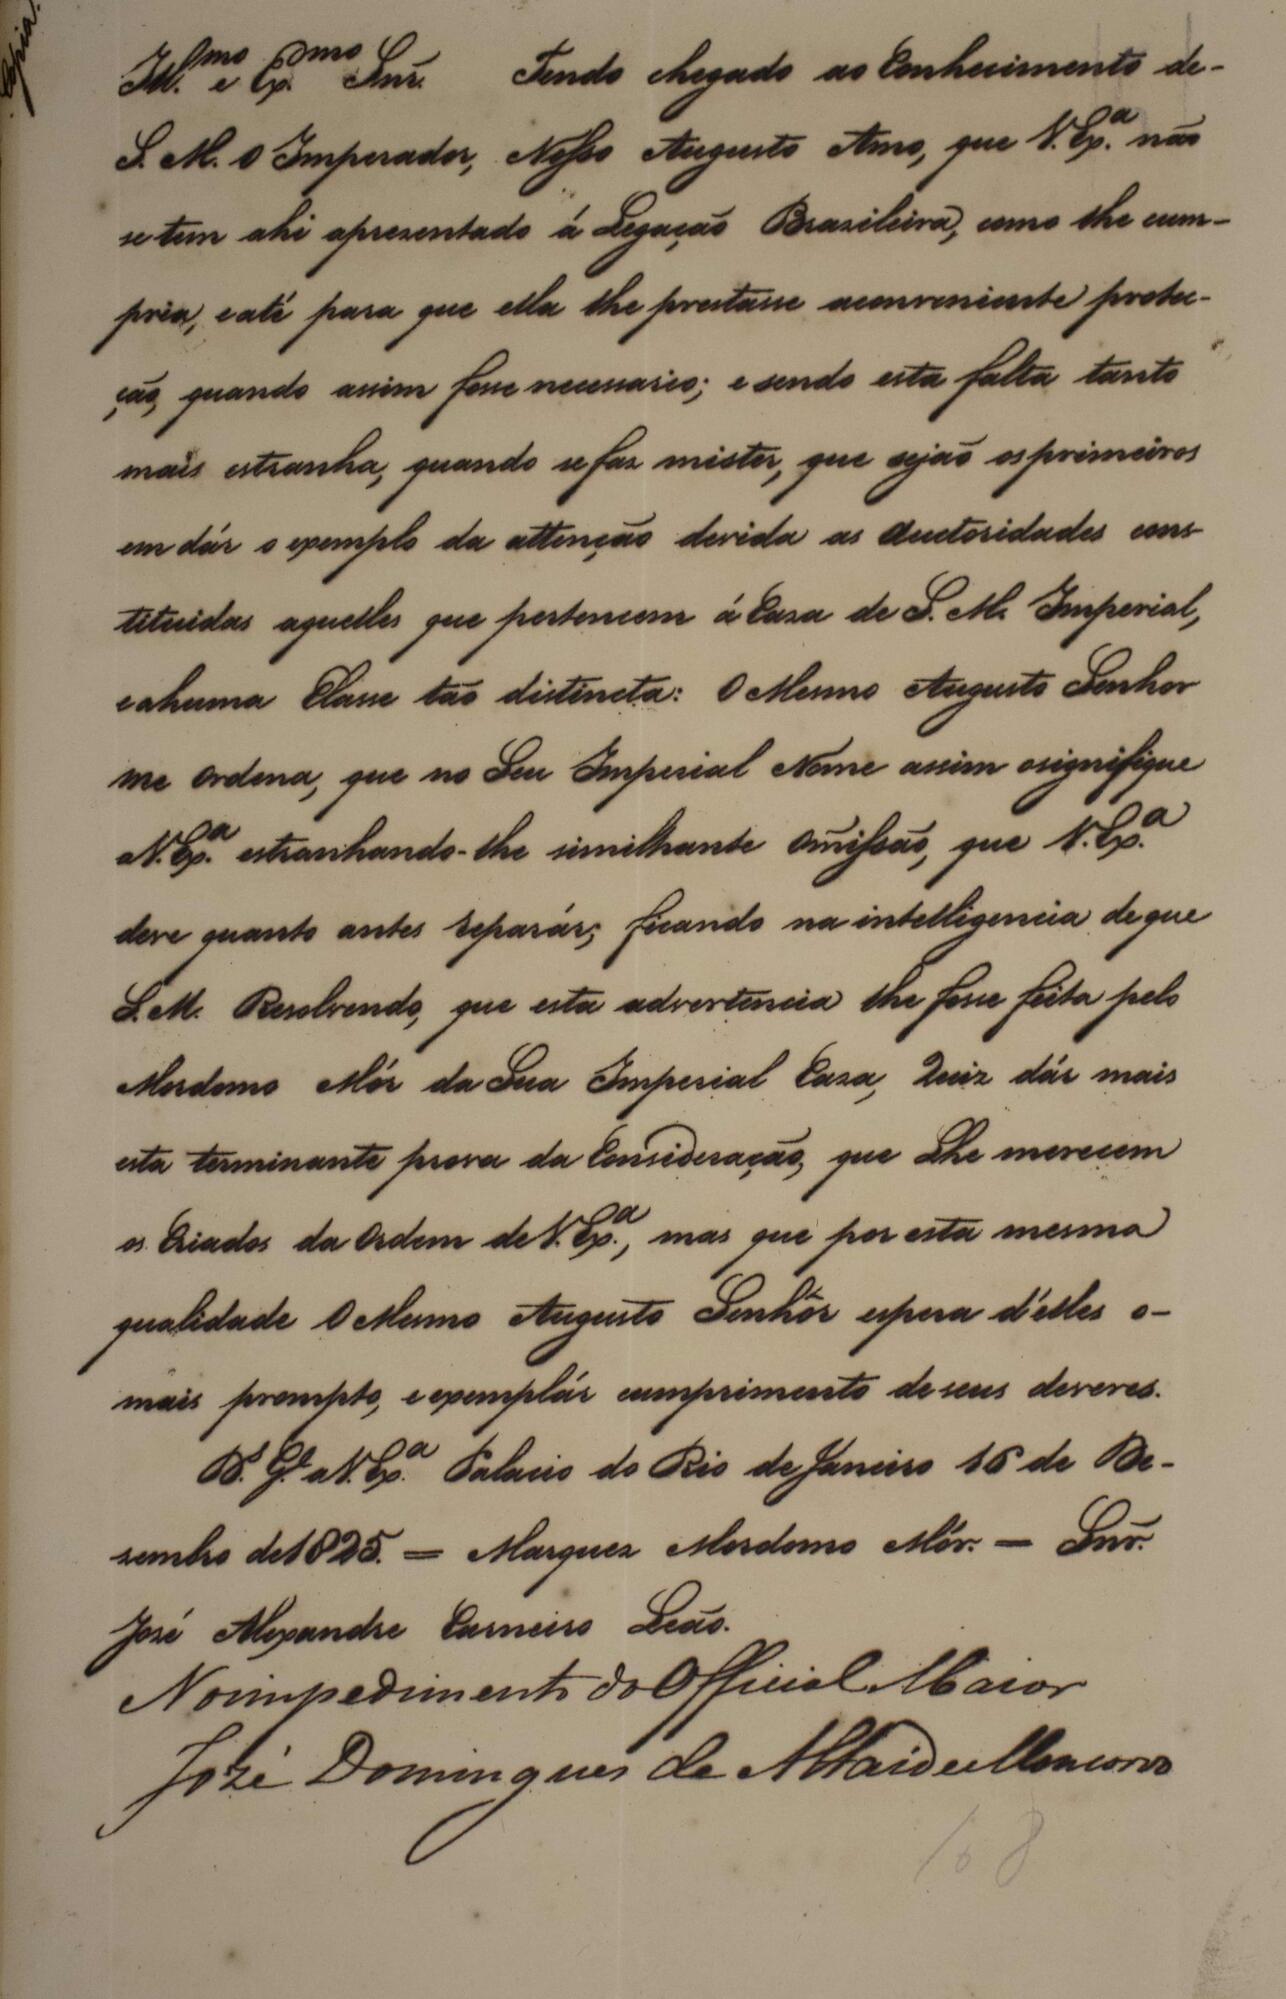 Copia.
Ill.mo e Ex.mo Snr. Tendo chegado ao Conhecimento de-
S. M. O Imperador, Nosso Augusto Amo, que V. Ex.a não
se tem ahi apresentado á Legação Brasileira, como lhe cum-
pria, e até para que ella lhe prestasse a conveniente protec-
ção, quando assim fosse necessario; e sendo esta falta tanto
mais estranha, quando se faz mister, que sejão os primeiros
em dár o exemplo da attenção devida as Auctoridades cons-
tituidas aquelles que pertencem á Casa de S. M. Imperial,
e a huma Classe tão distincta: O Mesmo Augusto Senhor
me Ordena, que no Seu Imperial Nome assim o signifique
a V. Ex.a estranhando-lhe similhante Omissão, que V. Ex.a
deve quanto antes reparár; ficando na intelligencia de que
S. M. Resolvendo, que esta advertencia lhe fosse feita pelo
Mordomo Mór da Sua Imperial Casa, Quiz dár mais
esta terminante prova da Consideração, que Lhe merecem
os Criados da Ordem de V. Ex.a, mas que por esta mesma
qualidade O Mesmo Augusto Senhôr espera d'elles o-
mais prompto, e exemplár cumprimento de seus deveres.
D.s G.e a V. Ex.a Palacio do Rio de Janeiro 16 de De-
zembro de 1825. = Marquez Mordomo Mór. = Snr.
José Alexandre Carneiro Leão.
No impedimento do Official Maior
José Domingues de Attaide Moncorvo
108